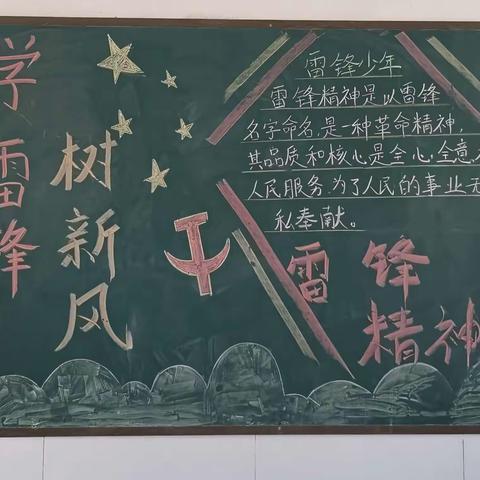 学雷锋
树新风
雷锋少年
雷锋精神是以雷锋
名字命名,是一种革命精神,
其品质和核心是全心全意
人民服务,为了人民的事业无
私奉献。
雷锋
精神